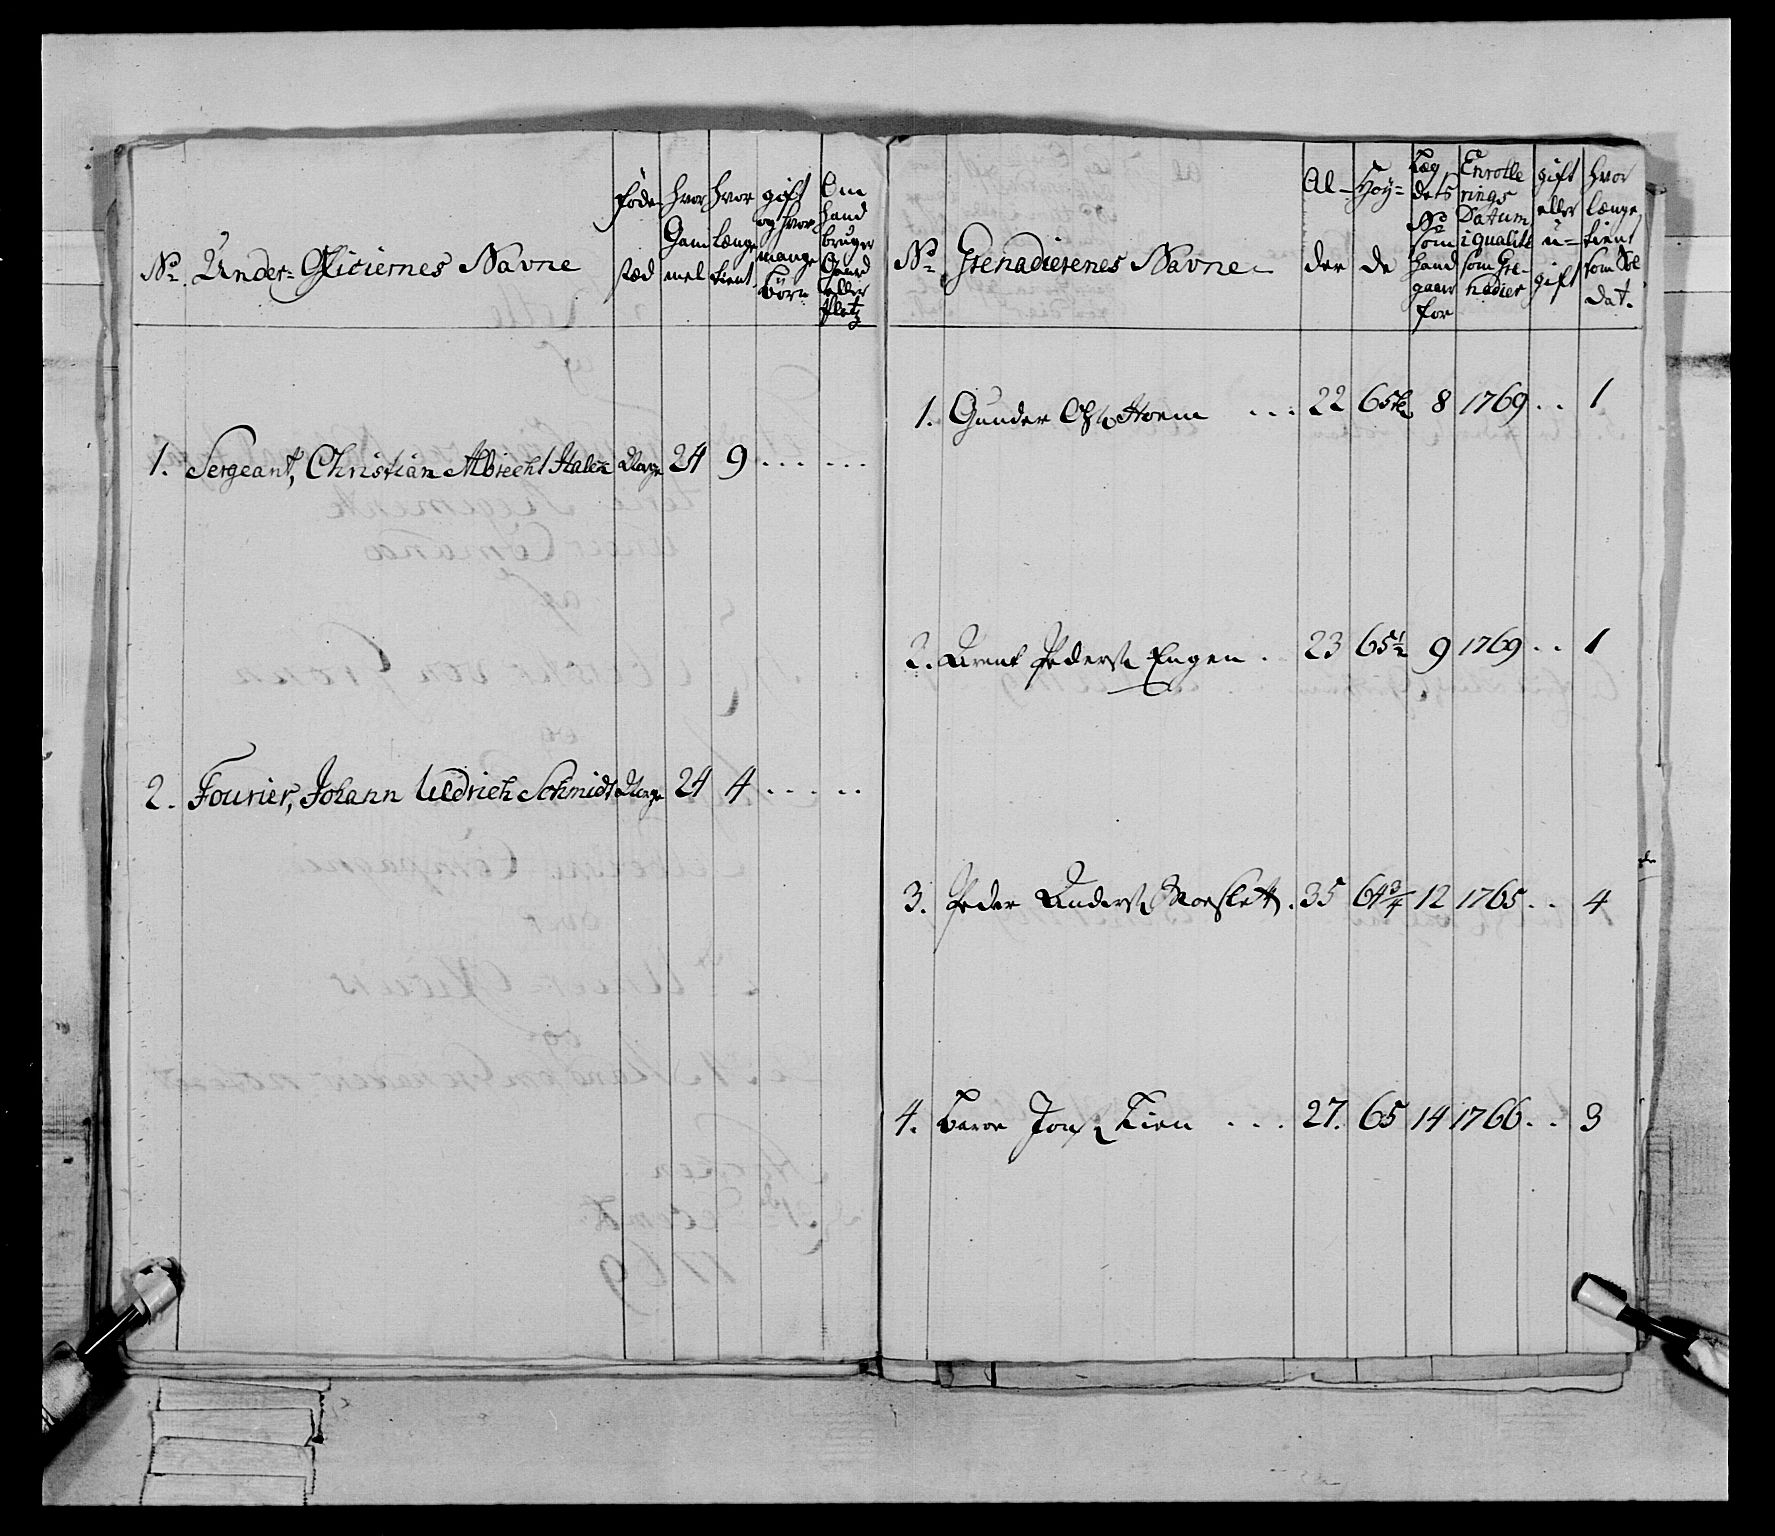 No. Under-Officiernes Navne | Føde stæd | hvor Gammel | hvor længe tient | gift og hvor mange Børn | Om hand bruger Gaard eller Platz
1. Sergeant, Christian Albrecht | Norge | 24 | 9 . . . . . .
2. Fourier, Johann Uldrich Schmidt | Norge | 24 | 4 . . . . .
No. Grenadierenes Navne | Alder | Høyde | Lægdets No som hand gaar for | Enrollerings Datum i qualite som Grenadier | gift eller ugift | hvor længe tient som Soldat.
1. Gunder Hoem . . . 22 | 65½ | 8 | 1769 . . 1
2. Arent Peders. Engen . 23 | 65½ | 9 | 1769 . . 1
3. Peder Anders. . 35 | 64¾ | 12 | 1765 . . 4
4. Jons. Lien . . . 27. | 65 | 14 | 1766 . . 3